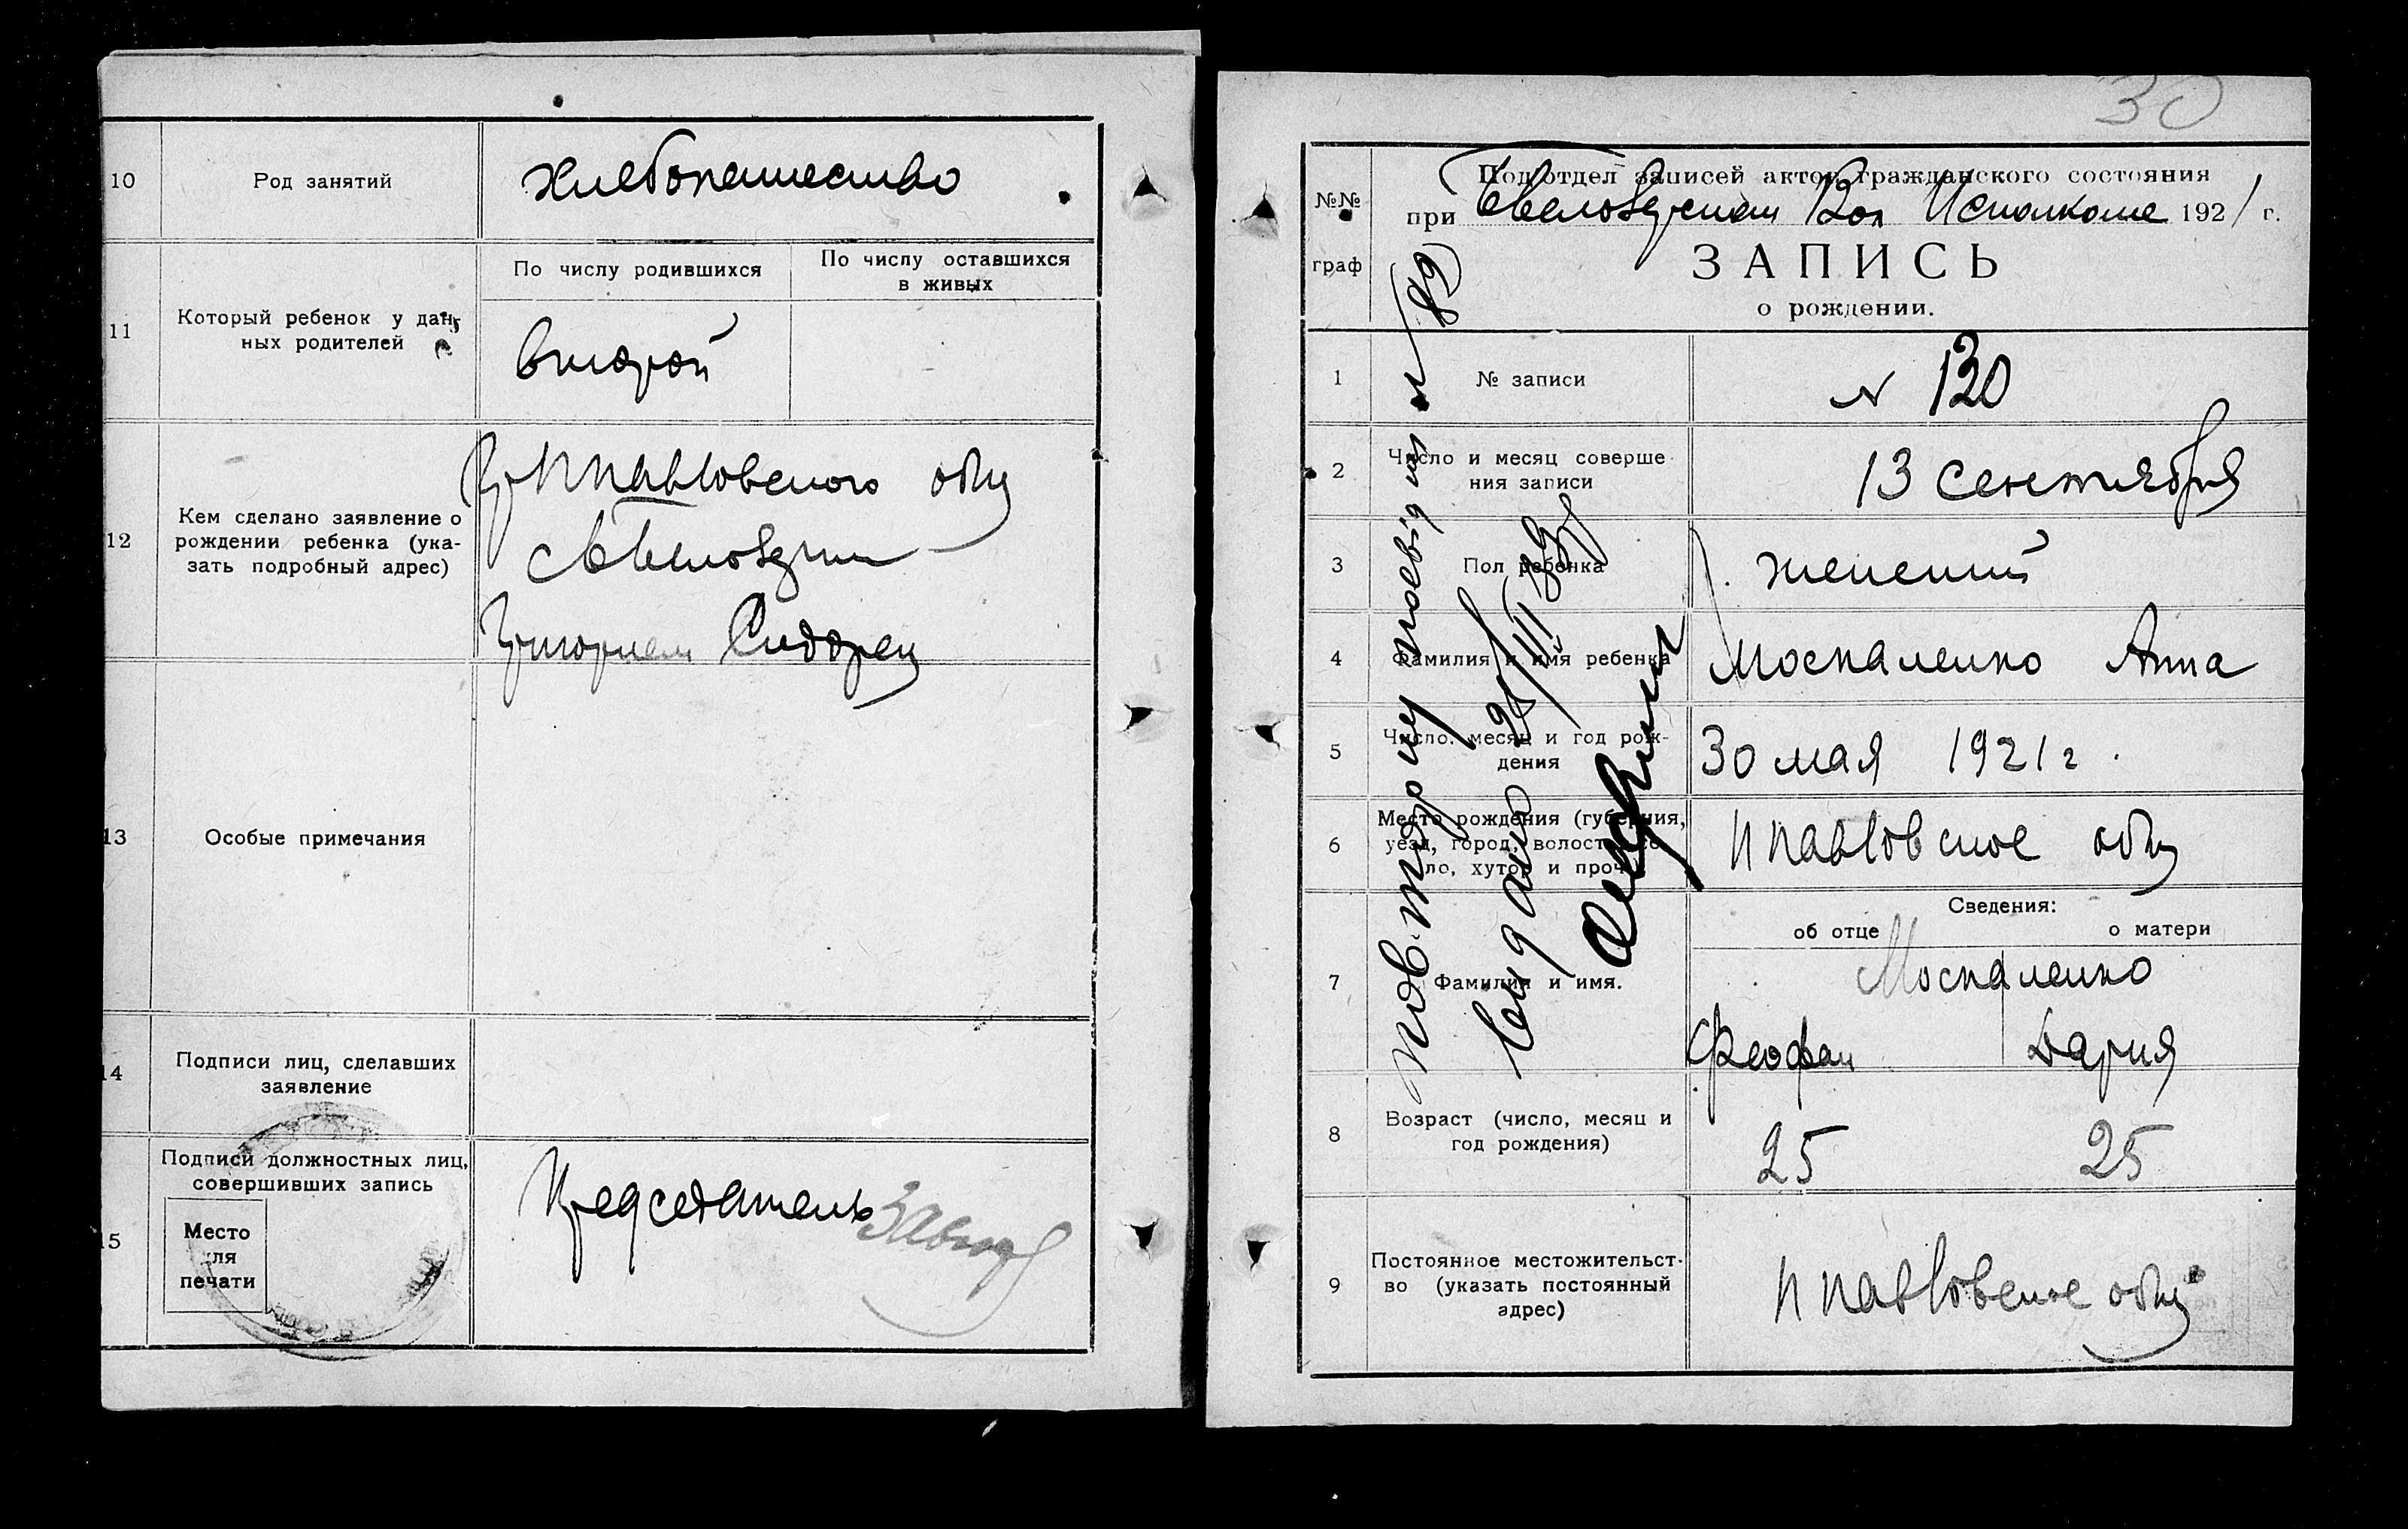 10
Род занятий
хлебопашество
11
Который ребенок у дан-
ных родителей
По числу родившихся
По числу оставшихся
в живых
второй
12
Кем сделано заявление о
рождении ребенка (ука-
зать подробный адрес)
Гр Нпавловского общ
Григорием Сидорец
13
Особые примечания
14
Подписи лиц, сделавших
заявление
15
Подписи должностных лиц,
совершивших запись
Место
для
печати
Председатель
30
№№
граф
Подотдел записей актов гражданского состояния
при Вол Исполкоме 1921 г.
ЗАПИСЬ
о рождении.
1
№ записи
N 130
2
Число и месяц соверше-
ния записи
13 сентября
3
Пол ребенка
женский
4
Фамилия и имя ребенка
Москаленко Анна
5
Число, месяц и год рож-
дения
30 мая 1921 г.
6
Место рождения (губерния,
уезд, город, волость, се-
ло, хутор и проч.
Нпавловское общ
Сведения:
об отце
о матери
7
Фамилия и имя.
Москаленко
Феофан
Дария
8
Возраст (число, месяц и
год рождения)
25
25
9
Постоянное местожительст-
во (указать постоянный
адрес)
Нпавловское общ